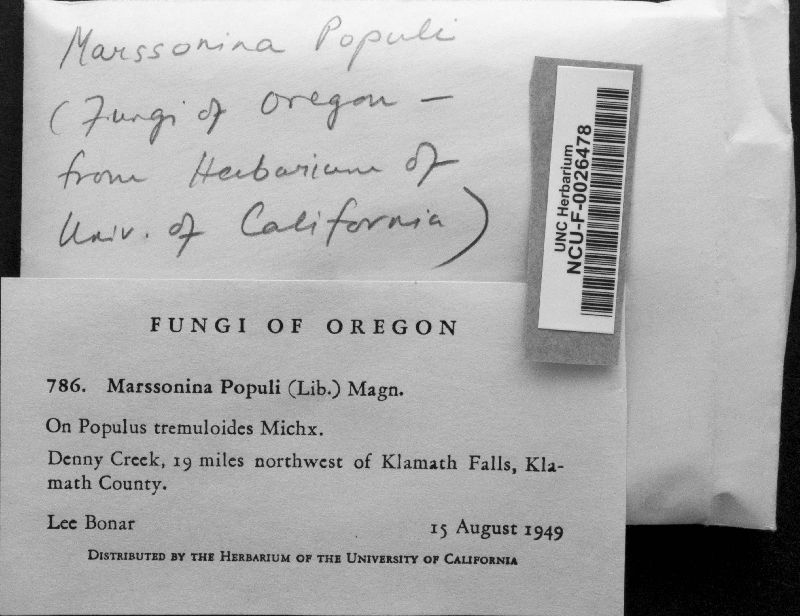 Marssonina Populi
(Fungi of Oregon —
from Herbarium of
Univ. of California)
UNC Herbarium
NCU-F-0026478
FUNGI OF OREGON
786. Marssonina Populi (Lib.) Magn.
On Populus tremuloides Michx.
Denny Creek, 19 miles northwest of Klamath Falls, Kla-
math County.
Lee Bonar 15 August 1949
Distributed by the Herbarium of the University of California